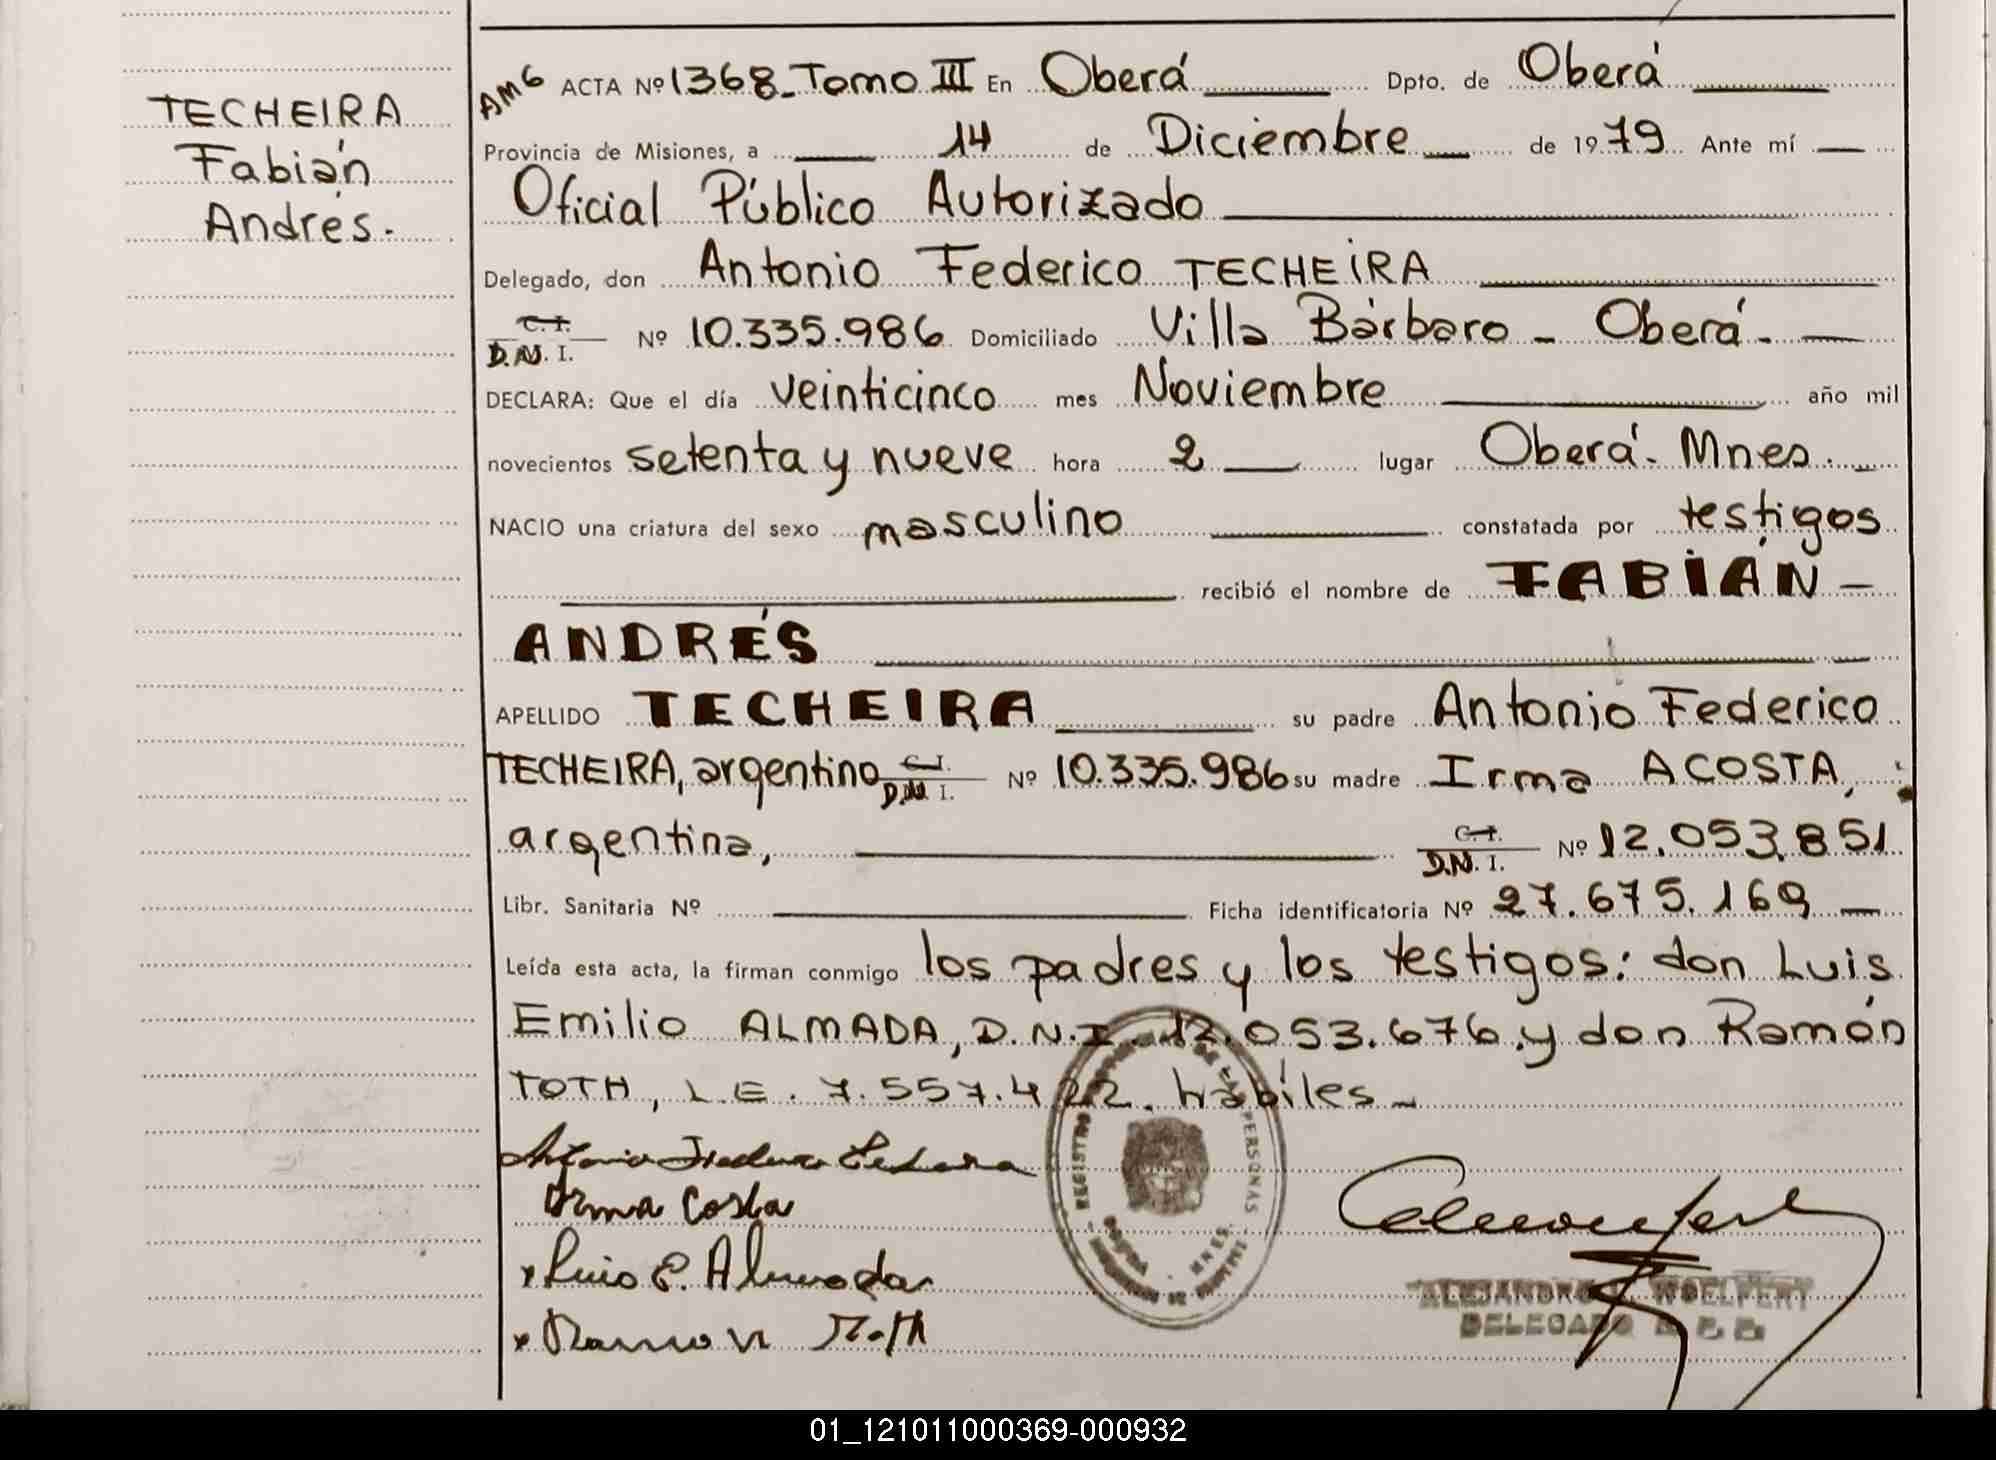 TECHEIRA
Fabián
Andrés.
AM6 ACTA Nº 1368_Tomo III En Oberá Dpto. de Oberá
Provincia de Misiones, a 14 de Diciembre de 1979 Ante mí
Oficial Público Autorizado
Delegado, don Antonio Federico TECHEIRA
C. I.
D.N. I. Nº 10.335.986 Domiciliado Villa Bárbaro - Oberá.
DECLARA: Que el día veinticinco mes Noviembre año mil
novecientos setenta y nueve hora 2 lugar Oberá. Mnes.
NACIO una criatura del sexo masculino constatada por testigos
recibió el nombre de FABIÁN
ANDRÉS
APELLIDO TECHEIRA su padre Antonio Federico
TECHEIRA, argentino C. I. D.N. I. Nº 10.335.986 su madre Irma ACOSTA,
argentina, C. I. D.N. I. Nº 12.053.851
Libr. Sanitaria Nº Ficha identificatoria Nº 27.675.169
Leída esta acta, la firman conmigo los padres y los testigos: don Luis
Emilio ALMADA, D.N.I. 12.053.676. y don Ramón
TOTH, L.E. 7.557.422. hábiles_
Irma Costa
Luis E. Almada
Ramon Toth
REGISTRO DE LAS PERSONAS
MNES.
ALEJANDRO WOELFERT
DELEGADO
01_121011000369-000932